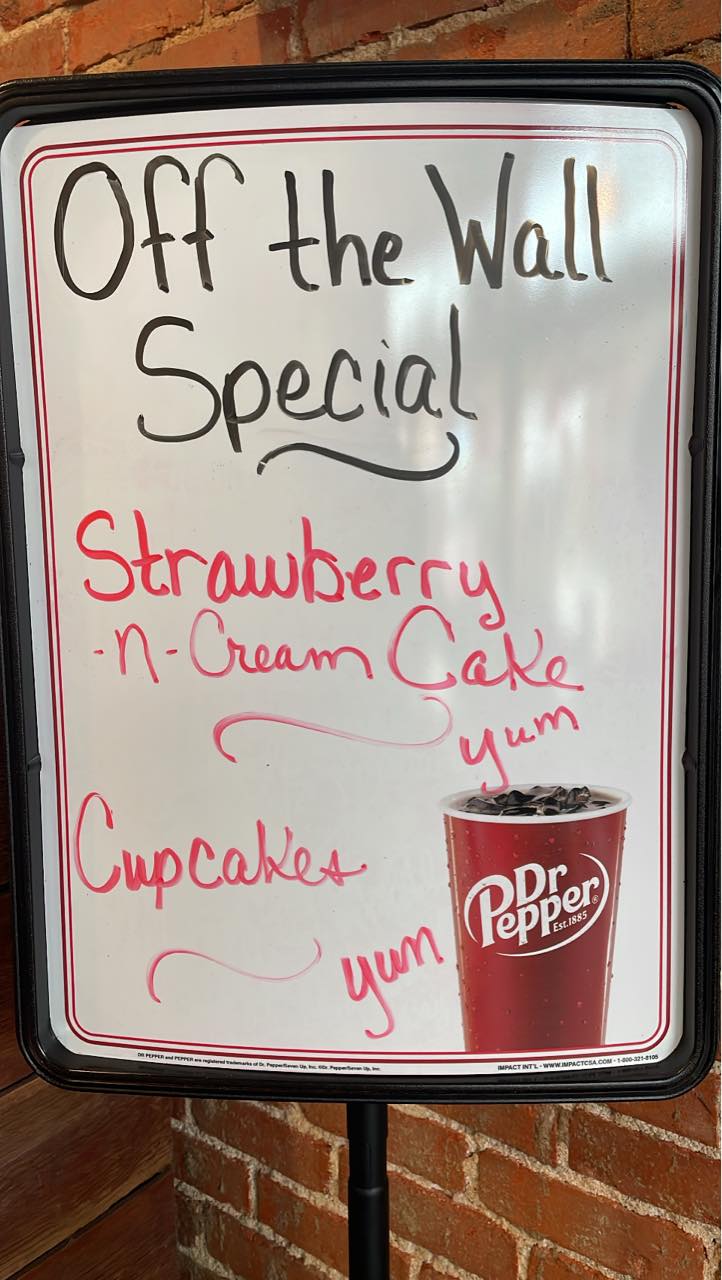 Off the Wall
Special
Strawberry
-n-Cream Cake
yum
Cupcakes
yum
Dr
Pepper®
Est.1885
DR PEPPER and PEPPER are registered trademarks of Dr. Pepper/Seven Up, Inc. ©Dr. Pepper/Seven Up, Inc.
IMPACT INT'L - WWW.IMPACTCSA.COM - 1-800-321-8105